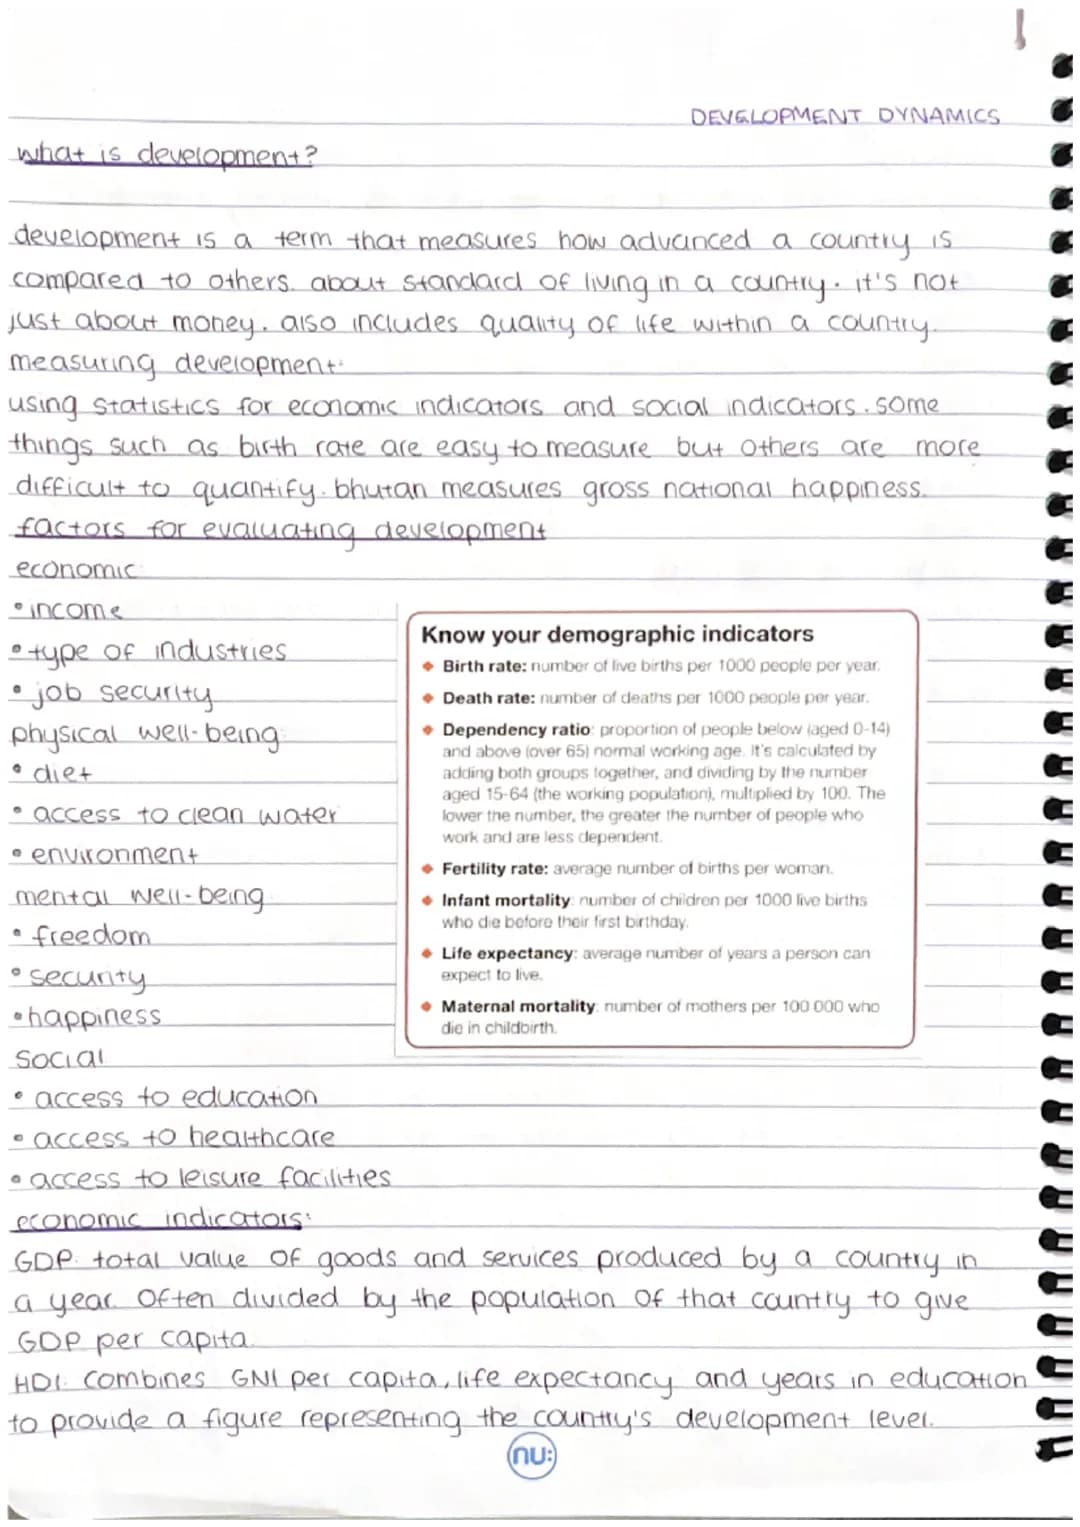 DEVELOPMENT DYNAMICS
what is development?
development is a term that measures how advanced a country is
compared to others. about standard of living in a country. it's not
just about money. also includes quality of life within a country.
measuring development:
using statistics for economic indicators and social indicators. some
things such as birth rate are easy to measure but others are more
difficult to quantify. bhutan measures gross national happiness.
factors for evaluating development
economic:
• income
• type of industries
• job security
physical well-being:
• diet
• access to clean water
• environment
mental well-being
• freedom
• security
• happiness
social
• access to education
• access to healthcare
• access to leisure facilities
Know your demographic indicators
◆ Birth rate: number of live births per 1000 people per year.
◆ Death rate: number of deaths per 1000 people per year.
◆ Dependency ratio: proportion of people below (aged 0-14)
and above (over 65) normal working age. It's calculated by
adding both groups together, and dividing by the number
aged 15-64 (the working population), multiplied by 100. The
lower the number, the greater the number of people who
work and are less dependent.
◆ Fertility rate: average number of births per woman.
◆ Infant mortality: number of children per 1000 live births
who die before their first birthday.
◆ Life expectancy: average number of years a person can
expect to live.
◆ Maternal mortality: number of mothers per 100 000 who
die in childbirth.
economic indicators:
GDP: total value of goods and services produced by a country in
a year. Often divided by the population of that country to give
GDP per capita.
HDI: combines GNI per capita, life expectancy and years in education
to provide a figure representing the country's development level.
nu: